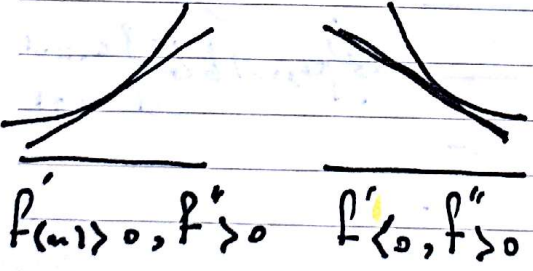 f'(x)>0, f''>0 f'<0, f''>0